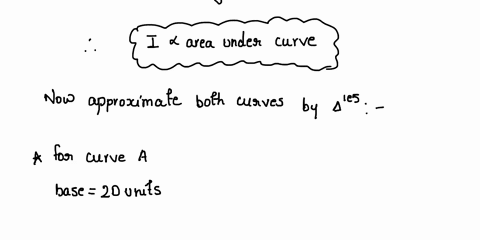 ∴ I ∝ area under curve
Now approximate both curves by Δ^les : -
* for curve A
base = 20 units